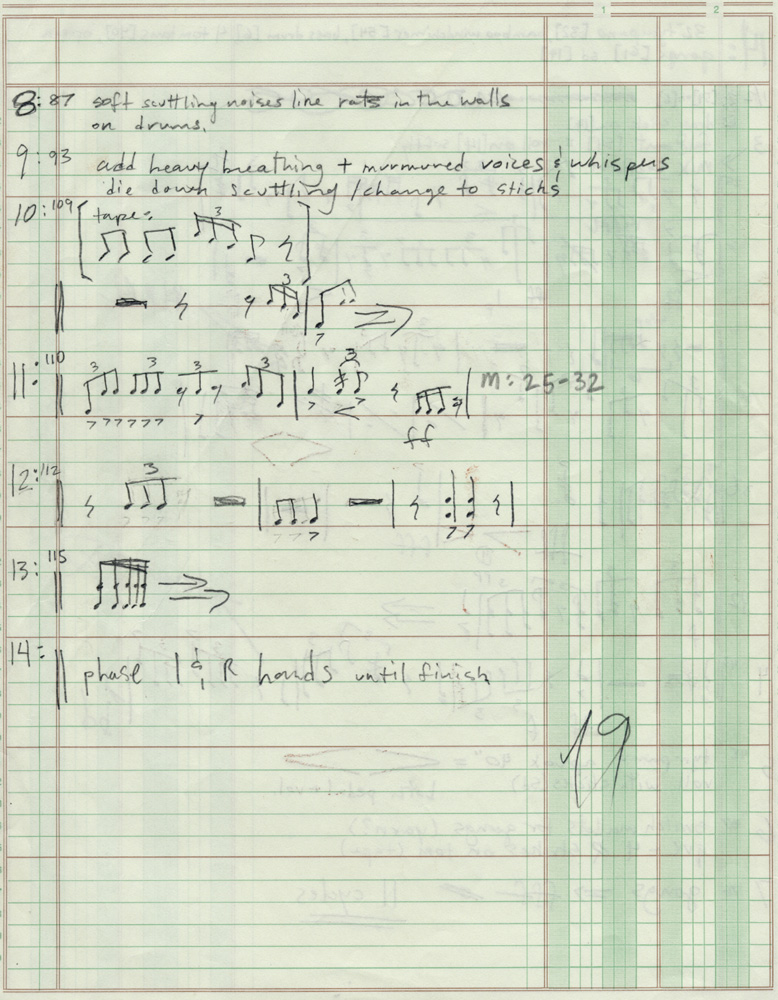 1 2
8: 87 soft scuttling noises line rats in the walls
on drums.
9: 93 add heavy breathing + murmured voices & whispers
die down scuttling / change to sticks
10: 109 [tape:
3
3
11: 110 3 3 3 3 3 m: 25-32
ff
12: 112 3
13: 115
14: phase l & R hands until finish
19